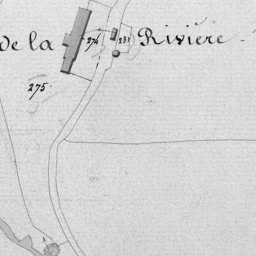 de la 274 231 Rivière
275